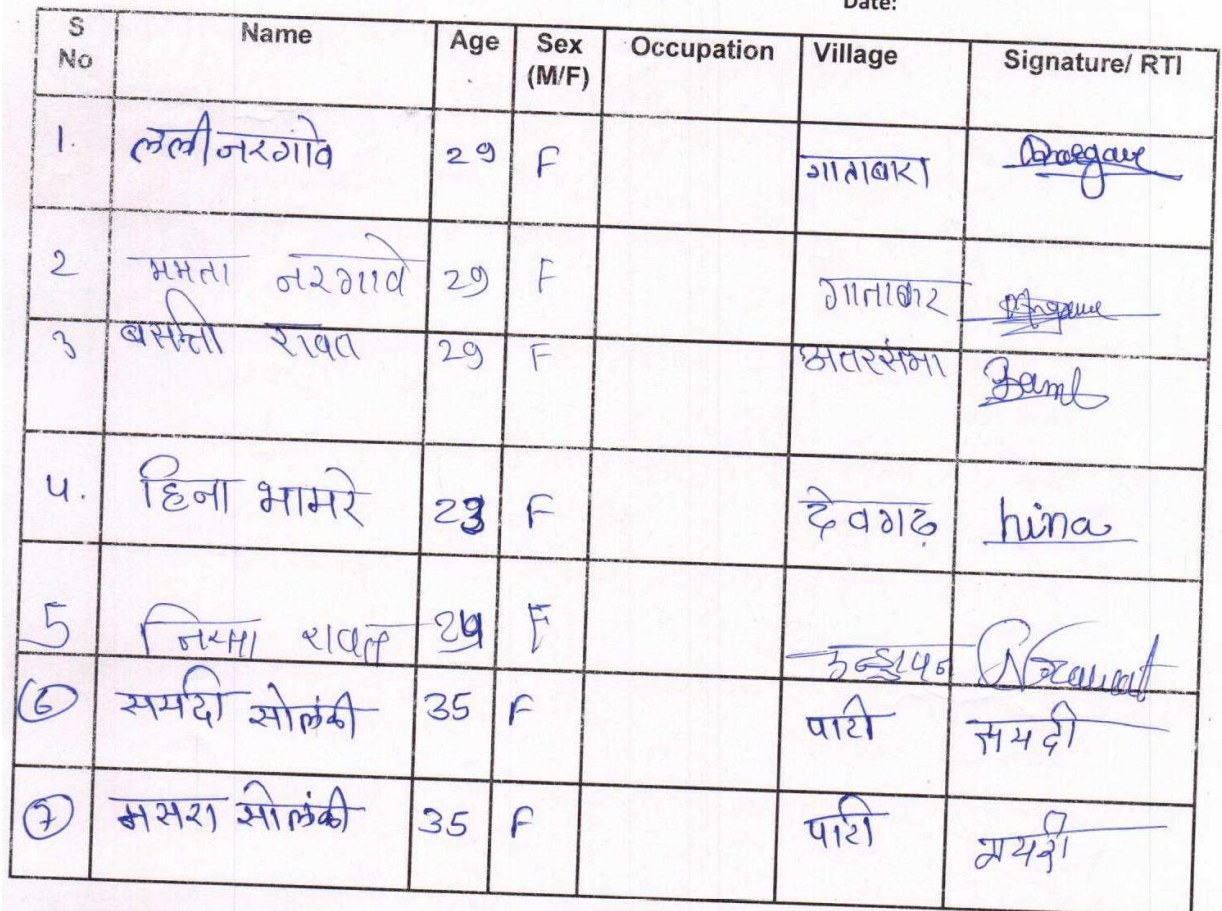 Date:
S No Name Age Sex (M/F) Occupation Village Signature/ RTI
1. लली नरगांवे 29 F गाताबारा
2 ममता नरगावे 29 F गाताबार
3 बसन्ती रावत 29 F अतरसंभा
4. हिना भामरे 23 F देवगढ़ hina
5 रावत 24 F
6 समदी सोलंकी 35 F पाटी समदी
7 मसरा सोलंकी 35 F पाटी